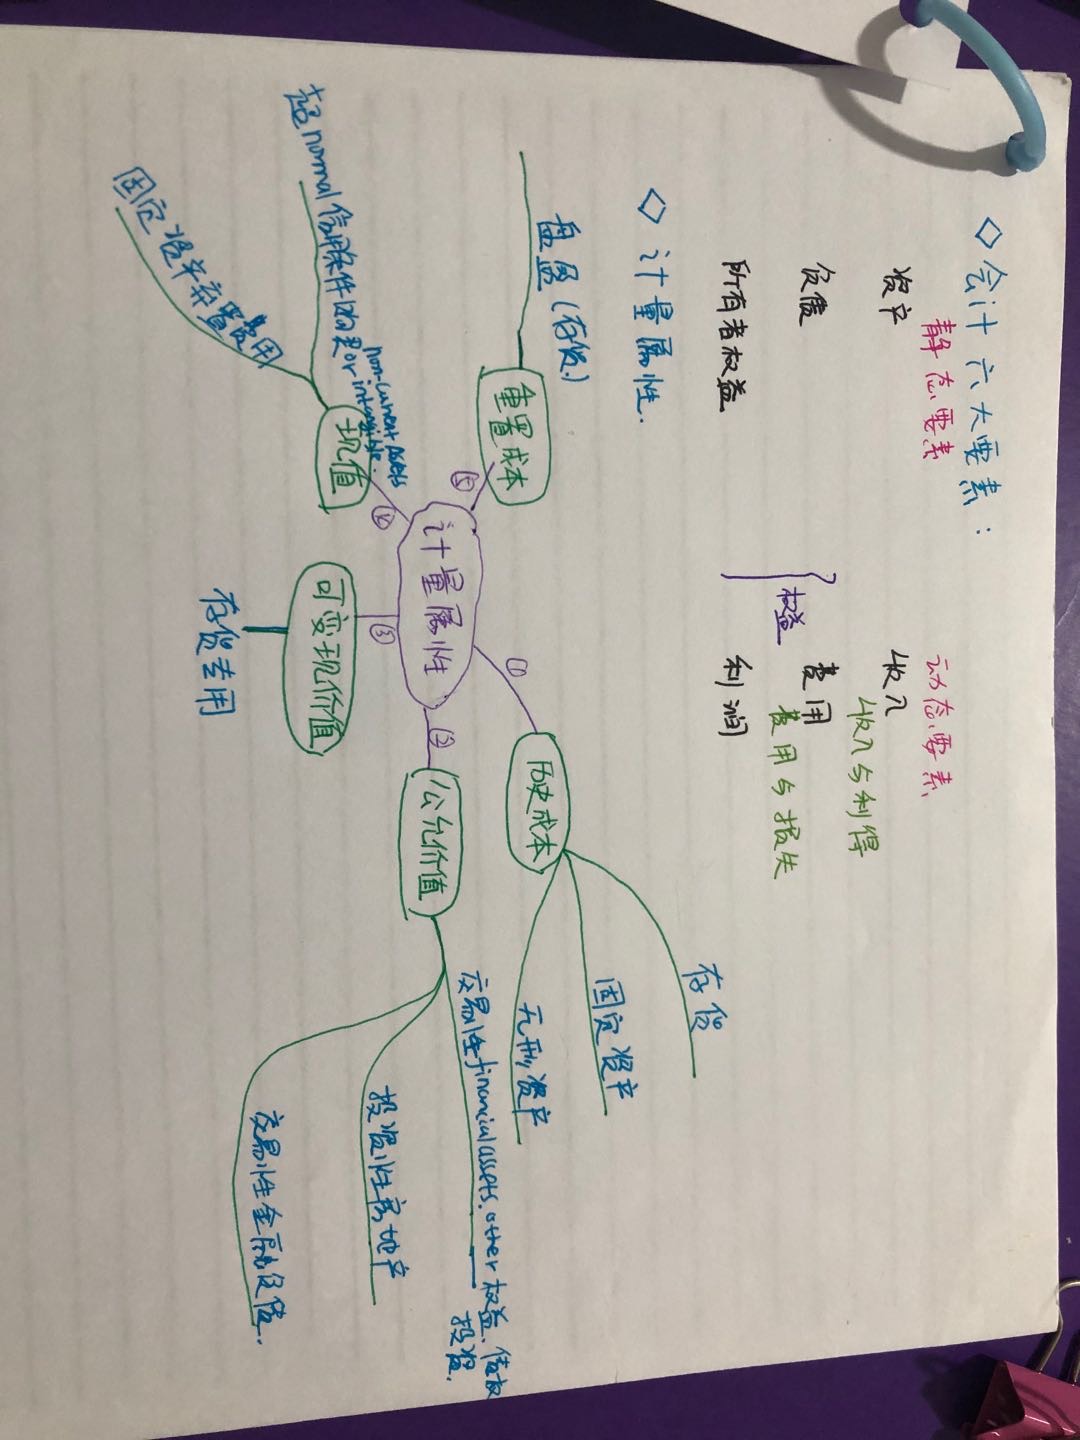 ◇会计六大要素:
静态要素 动态要素
资产 收入 收入与利得
负债 费用 费用与损失
所有者权益 利润
权益
◇ 计量属性.
计量属性
① 历史成本
存货
固定资产
无形资产
② 公允价值
交易性financial assets, other权益、债权
投资.
投资性房地产
交易性金融负债.
③ 可变现价值
存货专用
④ 现值
超normal信用条件购买
non-current assets
or intangible.
固定资产弃置费用
⑤ 重置成本
盘盈(存货)